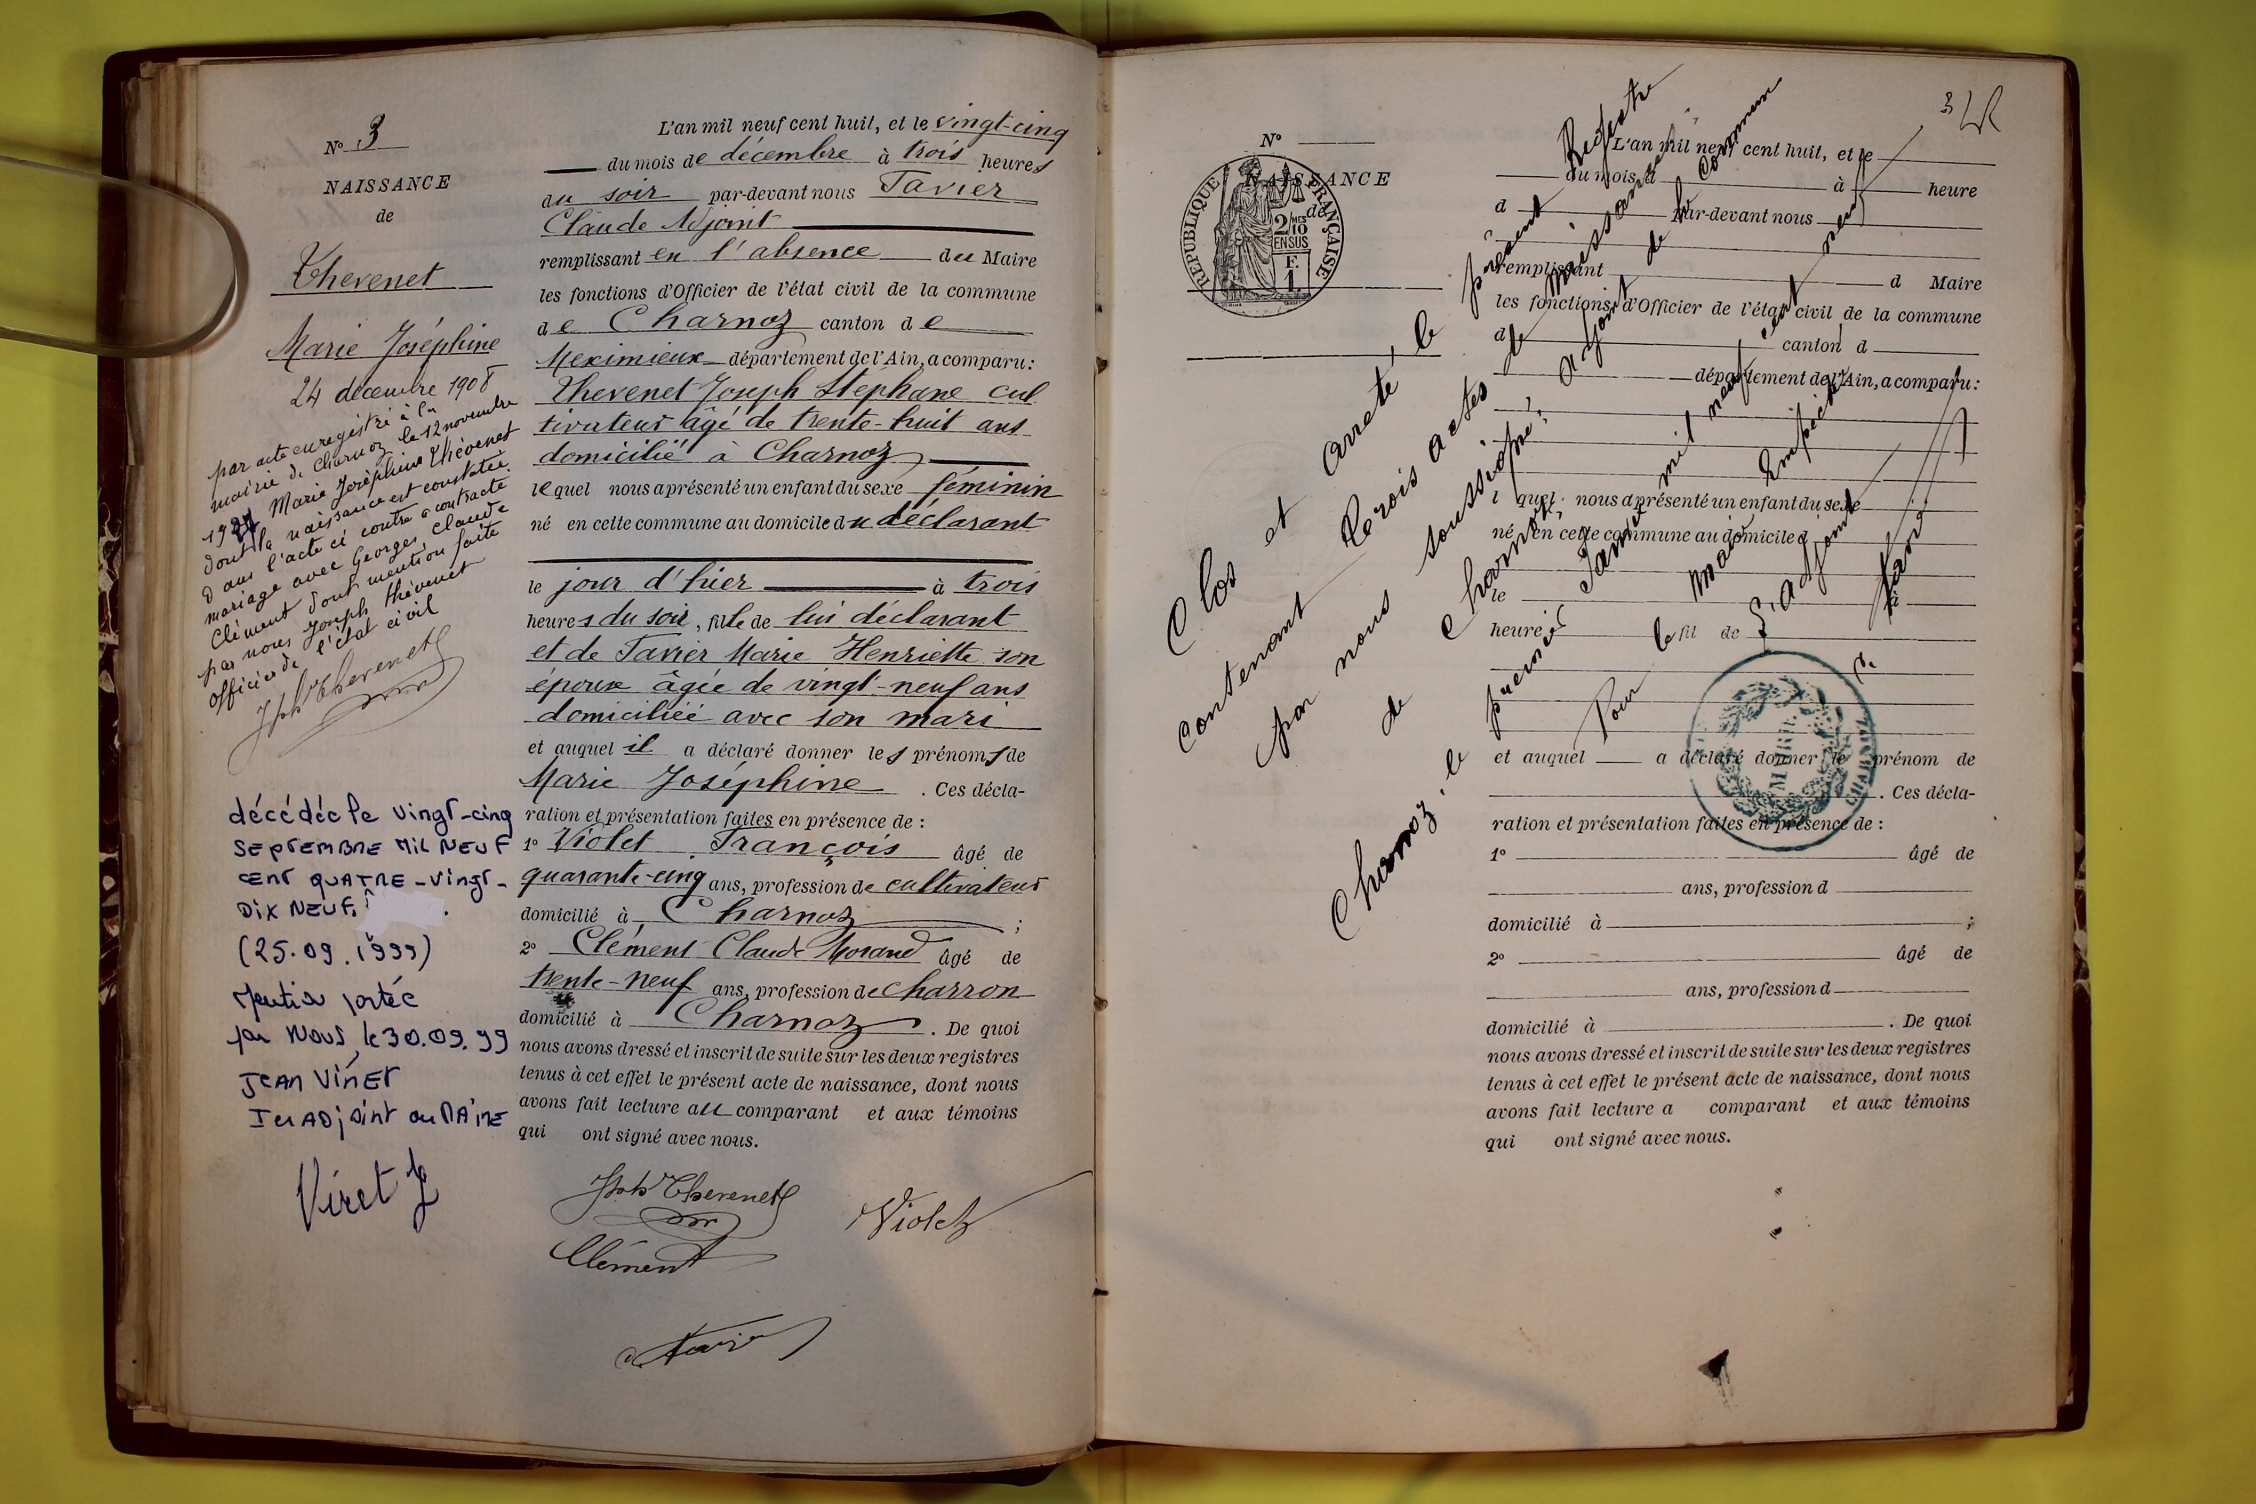 N° 3
NAISSANCE
de
Thevenet
Marie Joséphine
24 décembre 1908
par acte enregistré à la
mairie de Charnoz le 12 novembre
1927 Marie Joséphine Thévenet
dont la naissance est constatée
dans l'acte ci contre a contracté
mariage avec Georges Claude
Clément dont mention faite
par nous Joseph Thévenet
officier de l'état civil
Jph Thevenet
décédée le vingt-cinq
septembre mil neuf
cent quatre-vingt-
dix neuf.
(25.09.1999)
Mention portée
par nous, le 30.09.99
Jean Viret
1er Adjoint au Maire
Viret J
L'an mil neuf cent huit, et le vingt-cinq
du mois de décembre à trois heures
du soir par-devant nous Tavier
Claude Adjoint
remplissant en l'absence du Maire
les fonctions d'Officier de l'état civil de la commune
de Charnoz canton de
Meximieux département de l'Ain, a comparu:
Thevenet Joseph Stéphane cul
tivateur âgé de trente-huit ans
domicilié à Charnoz
lequel nous a présenté un enfant du sexe féminin
né en cette commune au domicile du déclarant
le jour d'hier à trois
heures du soir, fille de lui déclarant
et de Tavier Marie Henriette son
épouse âgée de vingt-neuf ans
domiciliée avec son mari
et auquel il a déclaré donner les prénoms de
Marie Joséphine . Ces décla-
ration et présentation faites en présence de :
1° Violet François âgé de
quarante-cinq ans, profession de cultivateur
domicilié à Charnoz ;
2° Clément Claude Morand âgé de
trente-neuf ans, profession de charron
domicilié à Charnoz . De quoi
nous avons dressé et inscrit de suite sur les deux registres
tenus à cet effet le présent acte de naissance, dont nous
avons fait lecture au comparant et aux témoins
qui ont signé avec nous.
Jph Thevenet
Violet
Clément
Tavier
3
N°
NAISSANCE
de
RÉPUBLIQUE FRANÇAISE
2/10 MES
EN SUS
F.
1
L'an mil neuf cent huit, et le
du mois d à heure
d par-devant nous
remplissant d Maire
les fonctions d'Officier de l'état civil de la commune
d canton d
département de l'Ain, a comparu:
l quel nous a présenté un enfant du sexe
né en cette commune au domicile d
le à
heure , fil de
et auquel a déclaré donner le prénom de
. Ces décla-
ration et présentation faites en présence de :
1° âgé de
ans, profession d
domicilié à ;
2° âgé de
ans, profession d
domicilié à . De quoi
nous avons dressé et inscrit de suite sur les deux registres
tenus à cet effet le présent acte de naissance, dont nous
avons fait lecture a comparant et aux témoins
qui ont signé avec nous.
Clos et arrêté, le présent Registre
contenant trois actes de naissances
par nous soussigné, adjoint de la commune
de Charnoz,
Charnoz, le premier Janvier mil neuf cent neuf
Pour le Maire Empêché
L'adjoint
Tavier
MAIRIE
CHARNOZ